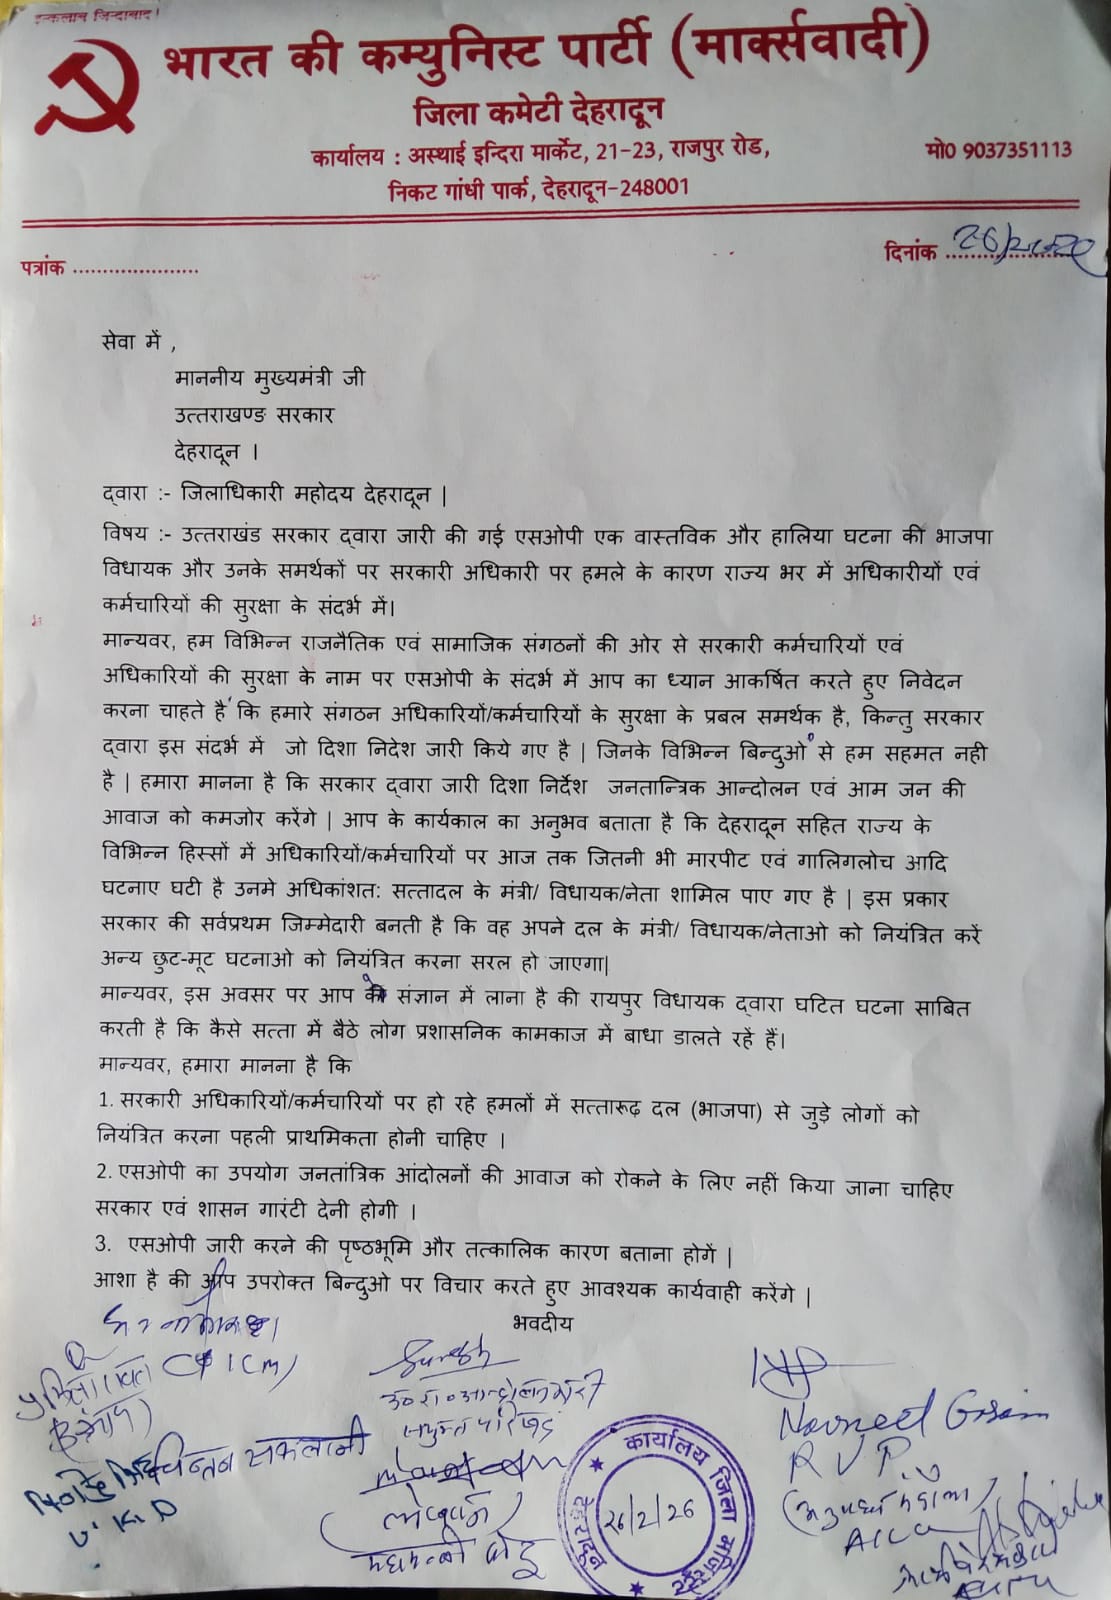 इन्कलाब जिन्दाबाद।
भारत की कम्युनिस्ट पार्टी (मार्क्सवादी)
जिला कमेटी देहरादून
कार्यालय : अस्थाई इन्दिरा मार्केट, 21-23, राजपुर रोड,
मो0 9037351113
निकट गांधी पार्क, देहरादून-248001
पत्रांक .....................
दिनांक
सेवा में ,
माननीय मुख्यमंत्री जी
उत्तराखण्ड सरकार
देहरादून ।
द्वारा :- जिलाधिकारी महोदय देहरादून |
विषय :- उत्तराखंड सरकार द्वारा जारी की गई एसओपी एक वास्तविक और हालिया घटना की भाजपा
विधायक और उनके समर्थकों पर सरकारी अधिकारी पर हमले के कारण राज्य भर में अधिकारीयों एवं
कर्मचारियों की सुरक्षा के संदर्भ में।
मान्यवर, हम विभिन्न राजनैतिक एवं सामाजिक संगठनों की ओर से सरकारी कर्मचारियों एवं
अधिकारियों की सुरक्षा के नाम पर एसओपी के संदर्भ में आप का ध्यान आकर्षित करते हुए निवेदन
करना चाहते है कि हमारे संगठन अधिकारियों/कर्मचारियों के सुरक्षा के प्रबल समर्थक है, किन्तु सरकार
द्वारा इस संदर्भ में जो दिशा निदेश जारी किये गए है | जिनके विभिन्न बिन्दुओं से हम सहमत नही
है | हमारा मानना है कि सरकार द्वारा जारी दिशा निर्देश जनतान्त्रिक आन्दोलन एवं आम जन की
आवाज को कमजोर करेंगे | आप के कार्यकाल का अनुभव बताता है कि देहरादून सहित राज्य के
विभिन्न हिस्सों में अधिकारियों/कर्मचारियों पर आज तक जितनी भी मारपीट एवं गालिगलोच आदि
घटनाए घटी है उनमे अधिकांशत: सत्तादल के मंत्री/ विधायक/नेता शामिल पाए गए है | इस प्रकार
सरकार की सर्वप्रथम जिम्मेदारी बनती है कि वह अपने दल के मंत्री/ विधायक/नेताओ को नियंत्रित करें
अन्य छुट-मूट घटनाओ को नियंत्रित करना सरल हो जाएगा|
मान्यवर, इस अवसर पर आप के संज्ञान में लाना है की रायपुर विधायक द्वारा घटित घटना साबित
करती है कि कैसे सत्ता में बैठे लोग प्रशासनिक कामकाज में बाधा डालते रहें हैं।
मान्यवर, हमारा मानना है कि
1. सरकारी अधिकारियों/कर्मचारियों पर हो रहे हमलों में सत्तारूढ़ दल (भाजपा) से जुड़े लोगों को
नियंत्रित करना पहली प्राथमिकता होनी चाहिए ।
2. एसओपी का उपयोग जनतांत्रिक आंदोलनों की आवाज को रोकने के लिए नहीं किया जाना चाहिए
सरकार एवं शासन गारंटी देनी होगी ।
3. एसओपी जारी करने की पृष्ठभूमि और तत्कालिक कारण बताना होगें |
आशा है की आप उपरोक्त बिन्दुओ पर विचार करते हुए आवश्यक कार्यवाही करेंगे |
भवदीय
चिन्तन सकलानी
Navneet
R U P
कार्यालय जिला मजिस्ट्रेट
26/2/26
देहरादून